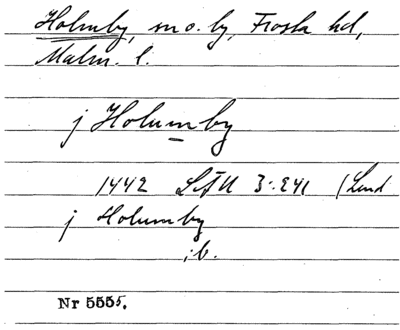 Holmby, sn o. by, Frosta hd,
Malm. l.
j Holumby
1442 LÄU 3:241 (Lund
j Holumby
ib.
Nr 5555.